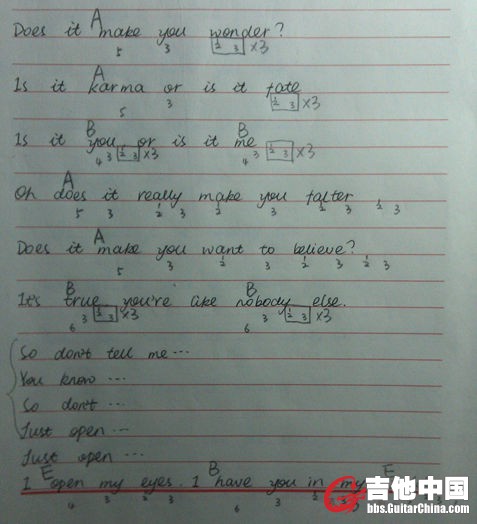 A
Does it make you wonder?
5 3 1/2 3 ×3
A
Is it karma or is it fate
5 3 1/2 3 ×3
B B
Is it you or is it me
4 3 1/2 3 ×3 4 3 1/2 3 ×3
A
Oh does it really make you falter
5 3 1/2 3 1/2 3 1/2 3 1/2 3
A
Does it make you want to believe?
5 3 1/2 3 1/2 3 1/2 3
B B
It's true you're like nobody else.
6 3 1/2 3 ×3 6 3 1/2 3 ×3
So don't tell me ...
You know ...
So don't ...
Just open ...
Just open ...
E B E
I open my eyes. I have you in my
4 3 1/2 3 6 3 1/2 3
吉他中国
bbs.GuitarChina.com